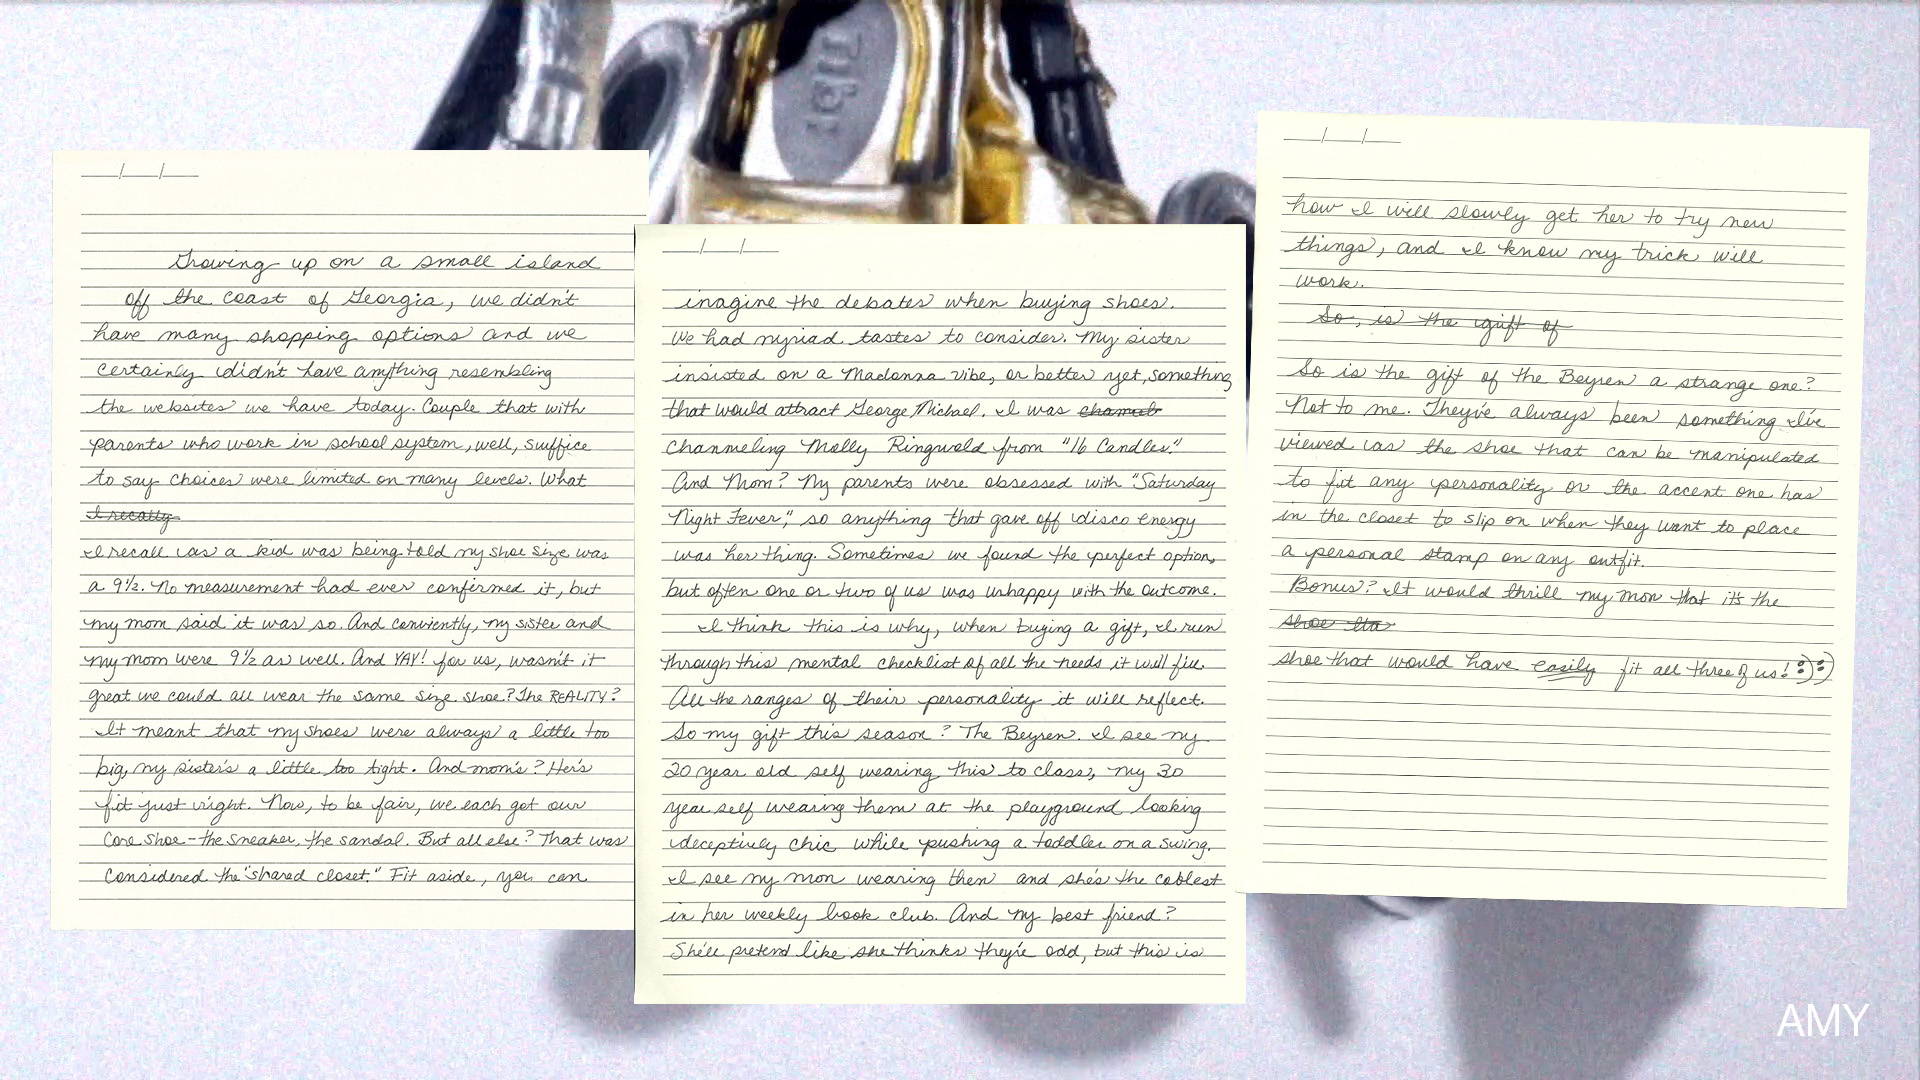 Tubi
Growing up on a small island
off the coast of Georgia, we didn't
have many shopping options and we
certainly didn't have anything resembling
the websites we have today. Couple that with
parents who work in school system, well, suffice
to say choices were limited on many levels. What
I recally
I recall as a kid was being told my shoe size was
a 9½. No measurement had ever confirmed it, but
my mom said it was so. And conviently, my sister and
my mom were 9½ as well. And YAY! for us, wasn't it
great we could all wear the same size shoe? The REALITY?
It meant that my shoes were always a little too
big, my sister's a little too tight. And mom's? Her's
fit just right. Now, to be fair, we each got our
core shoe - the sneaker, the sandal. But all else? That was
considered the "shared closet." Fit aside, you can
imagine the debates when buying shoes.
We had myriad tastes to consider. My sister
insisted on a Madonna vibe, or better yet, something
that would attract George Michael. I was chanub
channeling Molly Ringwald from "16 Candles."
And Mom? My parents were obsessed with "Saturday
Night Fever," so anything that gave off disco energy
was her thing. Sometimes we found the perfect option,
but often one or two of us was unhappy with the outcome.
I think this is why, when buying a gift, I run
through this mental checklist of all the needs it will fill.
All the ranges of their personality it will reflect.
So my gift this season? The Beyren. I see my
20 year old self wearing this to class, my 30
year self wearing them at the playground looking
deceptively chic while pushing a toddler on a swing.
I see my mom wearing them and she's the coolest
in her weekly book club. And my best friend?
She'll pretend like she thinks they're odd, but this is
how I will slowly get her to try new
things, and I know my trick will
work.
So, is the gift of
So is the gift of the Beyren a strange one?
Not to me. They've always been something I've
viewed as the shoe that can be manipulated
to fit any personality or the accent one has
in the closet to slip on when they want to place
a personal stamp on any outfit.
Bonus? It would thrill my mom that it's the
shoe tha
shoe that would have easily fit all three of us! :) :)
AMY